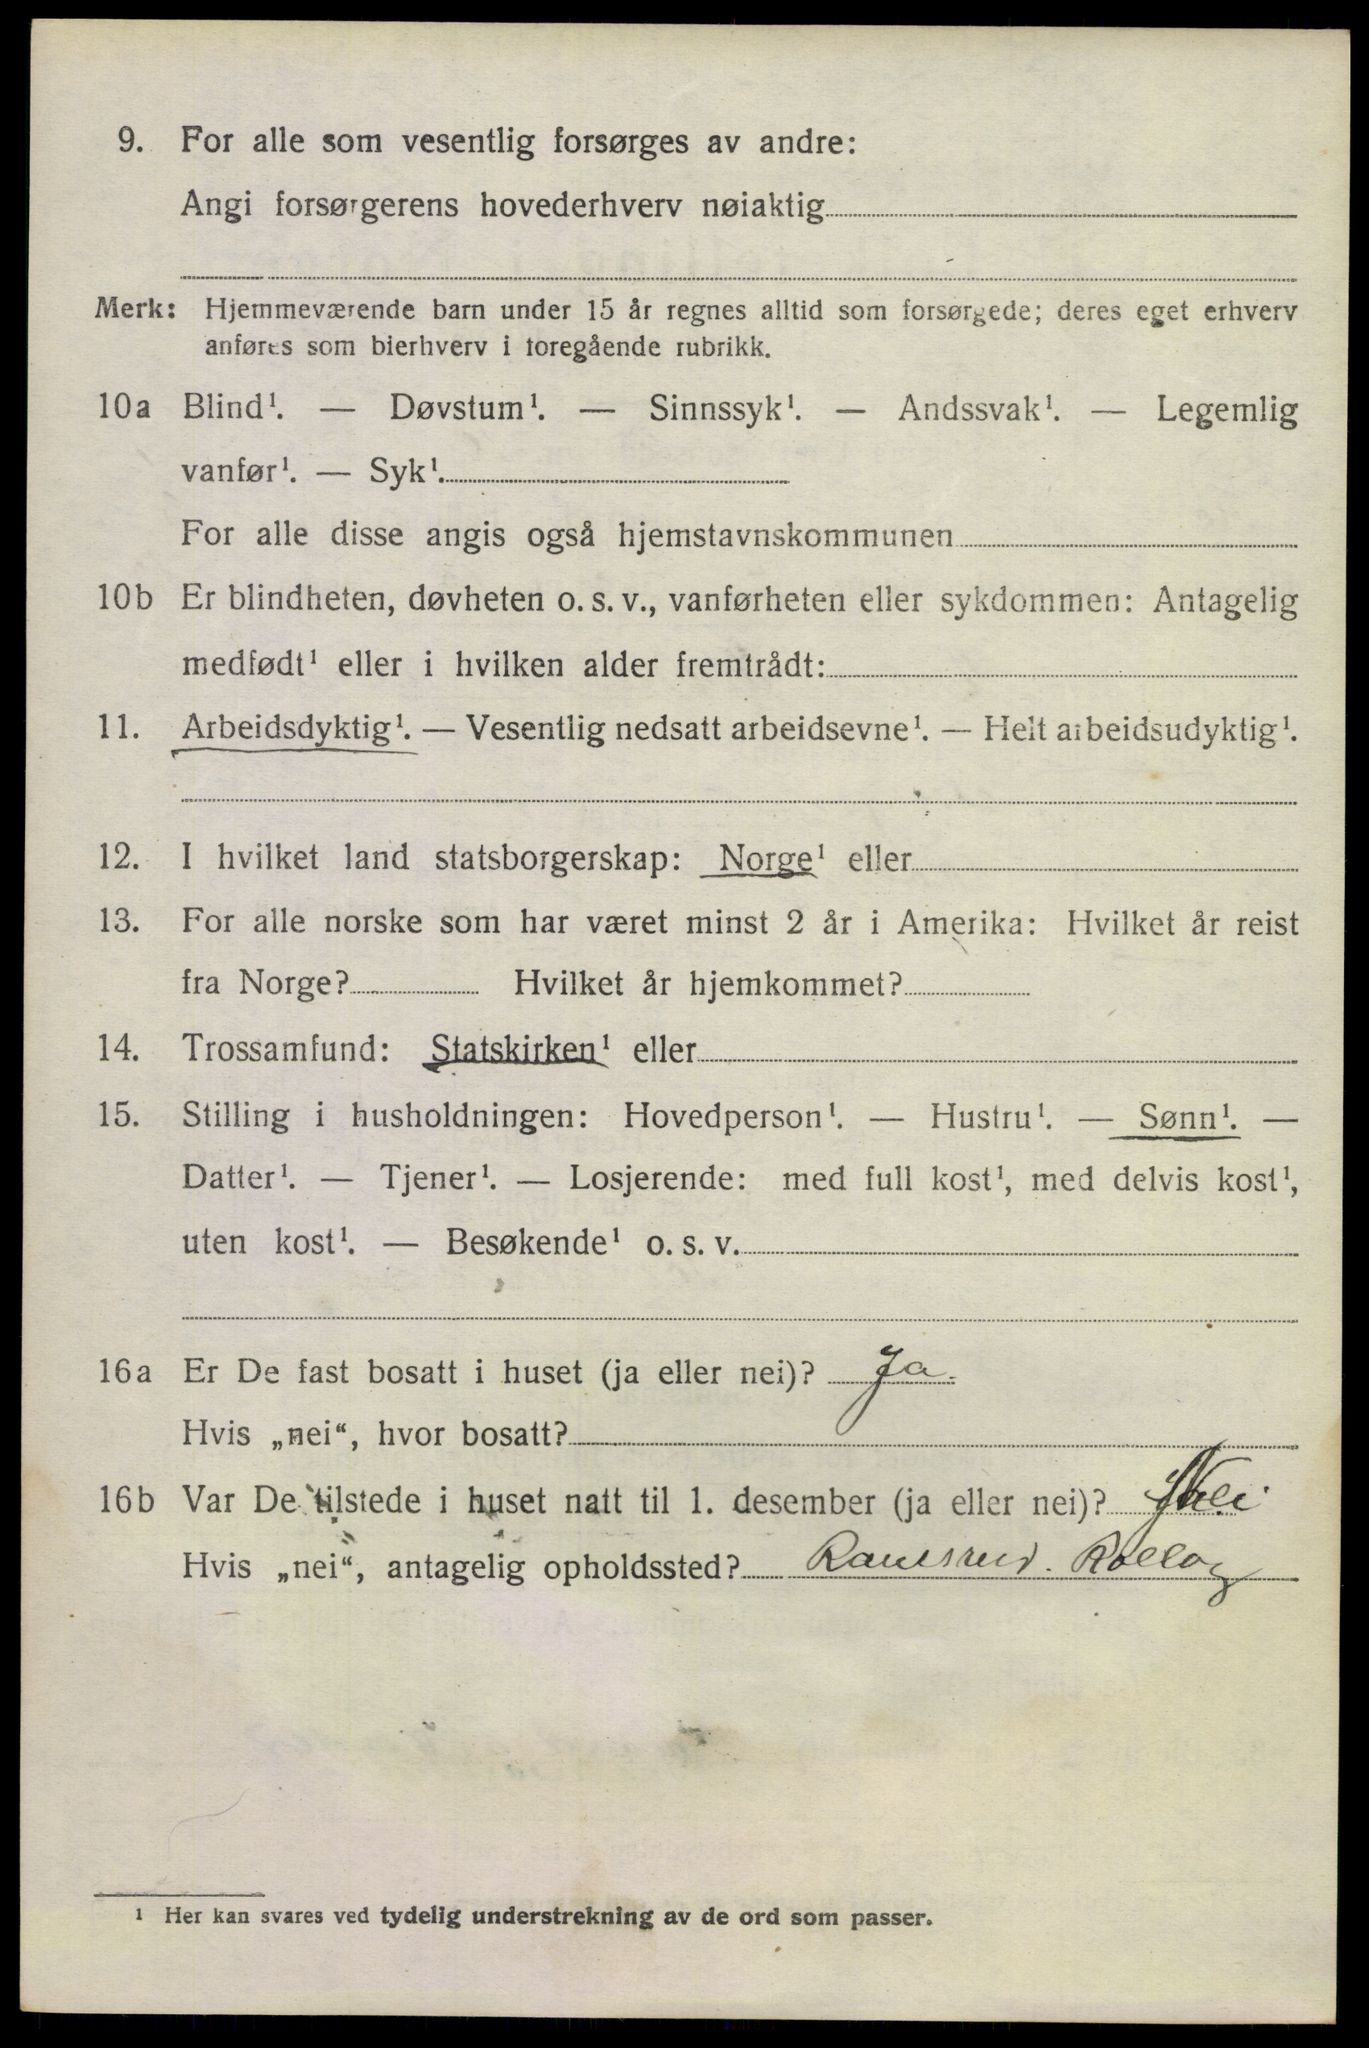 9. For alle som vesentlig forsørges av andre:
Angi forsørgerens hovederhverv nøiaktig
Merk: Hjemmeværende barn under 15 år regnes alltid som forsørgede; deres eget erhverv
anføres som bierhverv i foregående rubrikk.
10a Blind¹. — Døvstum¹. — Sinnssyk¹. — Andssvak¹. — Legemlig
vanfør¹. — Syk¹.
For alle disse angis også hjemstavnskommunen
10b Er blindheten, døvheten o. s. v., vanførheten eller sykdommen: Antagelig
medfødt¹ eller i hvilken alder fremtrådt:
11. Arbeidsdyktig¹. — Vesentlig nedsatt arbeidsevne¹. — Helt arbeidsudyktig¹.
12. I hvilket land statsborgerskap: Norge¹ eller
13. For alle norske som har været minst 2 år i Amerika: Hvilket år reist
fra Norge? Hvilket år hjemkommet?
14. Trossamfund: Statskirken¹ eller
15. Stilling i husholdningen: Hovedperson¹. — Hustru¹. — Sønn¹. —
Datter¹. — Tjener¹. — Losjerende: med full kost¹, med delvis kost¹,
uten kost¹. — Besøkende¹ o. s. v.
16a Er De fast bosatt i huset (ja eller nei)? Ja.
Hvis „nei“, hvor bosatt?
16b Var De tilstede i huset natt til 1. desember (ja eller nei)? Nei
Hvis „nei“, antagelig opholdssted? Rollag
¹ Her kan svares ved tydelig understrekning av de ord som passer.